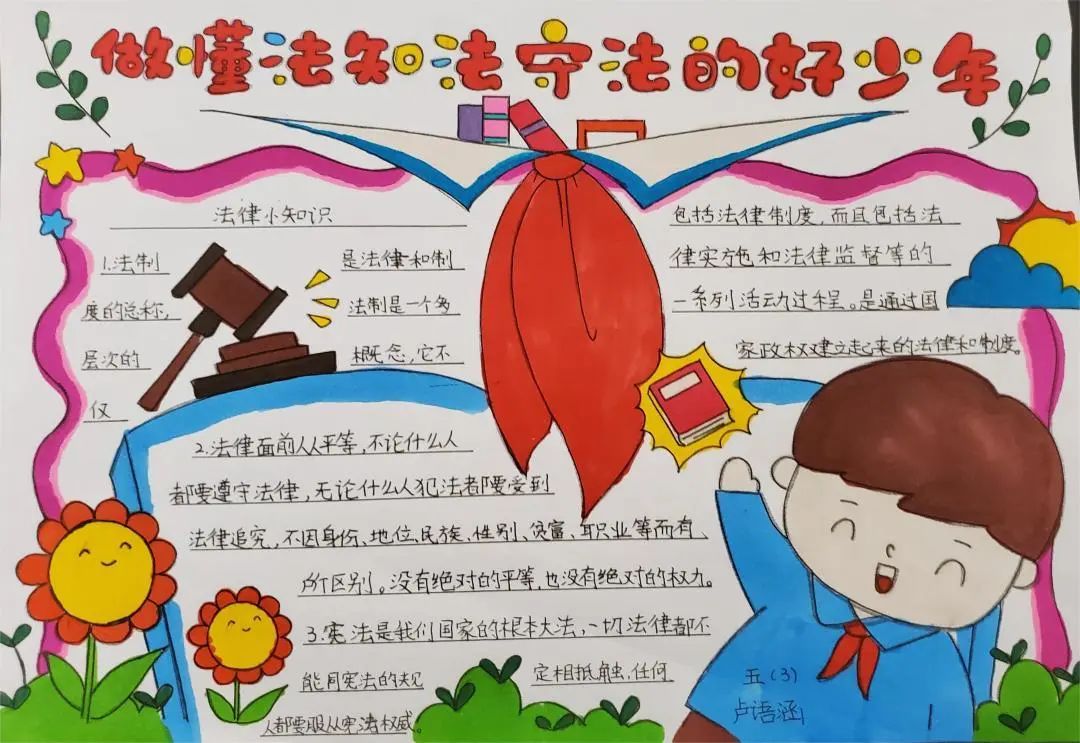 做懂法知法守法的好少年
法律小知识
1.法制 是法律和制
度的总称, 法制是一个多
层次的 概念,它不
仅
包括法律制度,而且包括法
律实施和法律监督等的
一系列活动过程。是通过国
家政权建立起来的法律和制度。
2.法律面前人人平等,不论什么人
都要遵守法律,无论什么人犯法都要受到
法律追究,不因身份、地位、民族、性别、贫富、职业等而有
所区别。没有绝对的平等,也没有绝对的权力。
3.宪法是我们国家的根本大法,一切法律都不
能同宪法的规 定相抵触,任何
人都要服从宪法权威。
五(3)
卢语涵